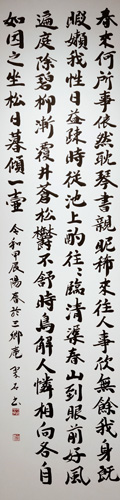 春來何所事依然耽琴書親昵稀來往人事欣無餘我身既
暇嬾我性日益踈時從池上酌往〻臨清渠春山到眼前好風
遍庭除碧柳漸覆井蒼松欝不舒時鳥解人憐相向各自
如因之坐松日暮傾一壺
令和甲辰陽春於二